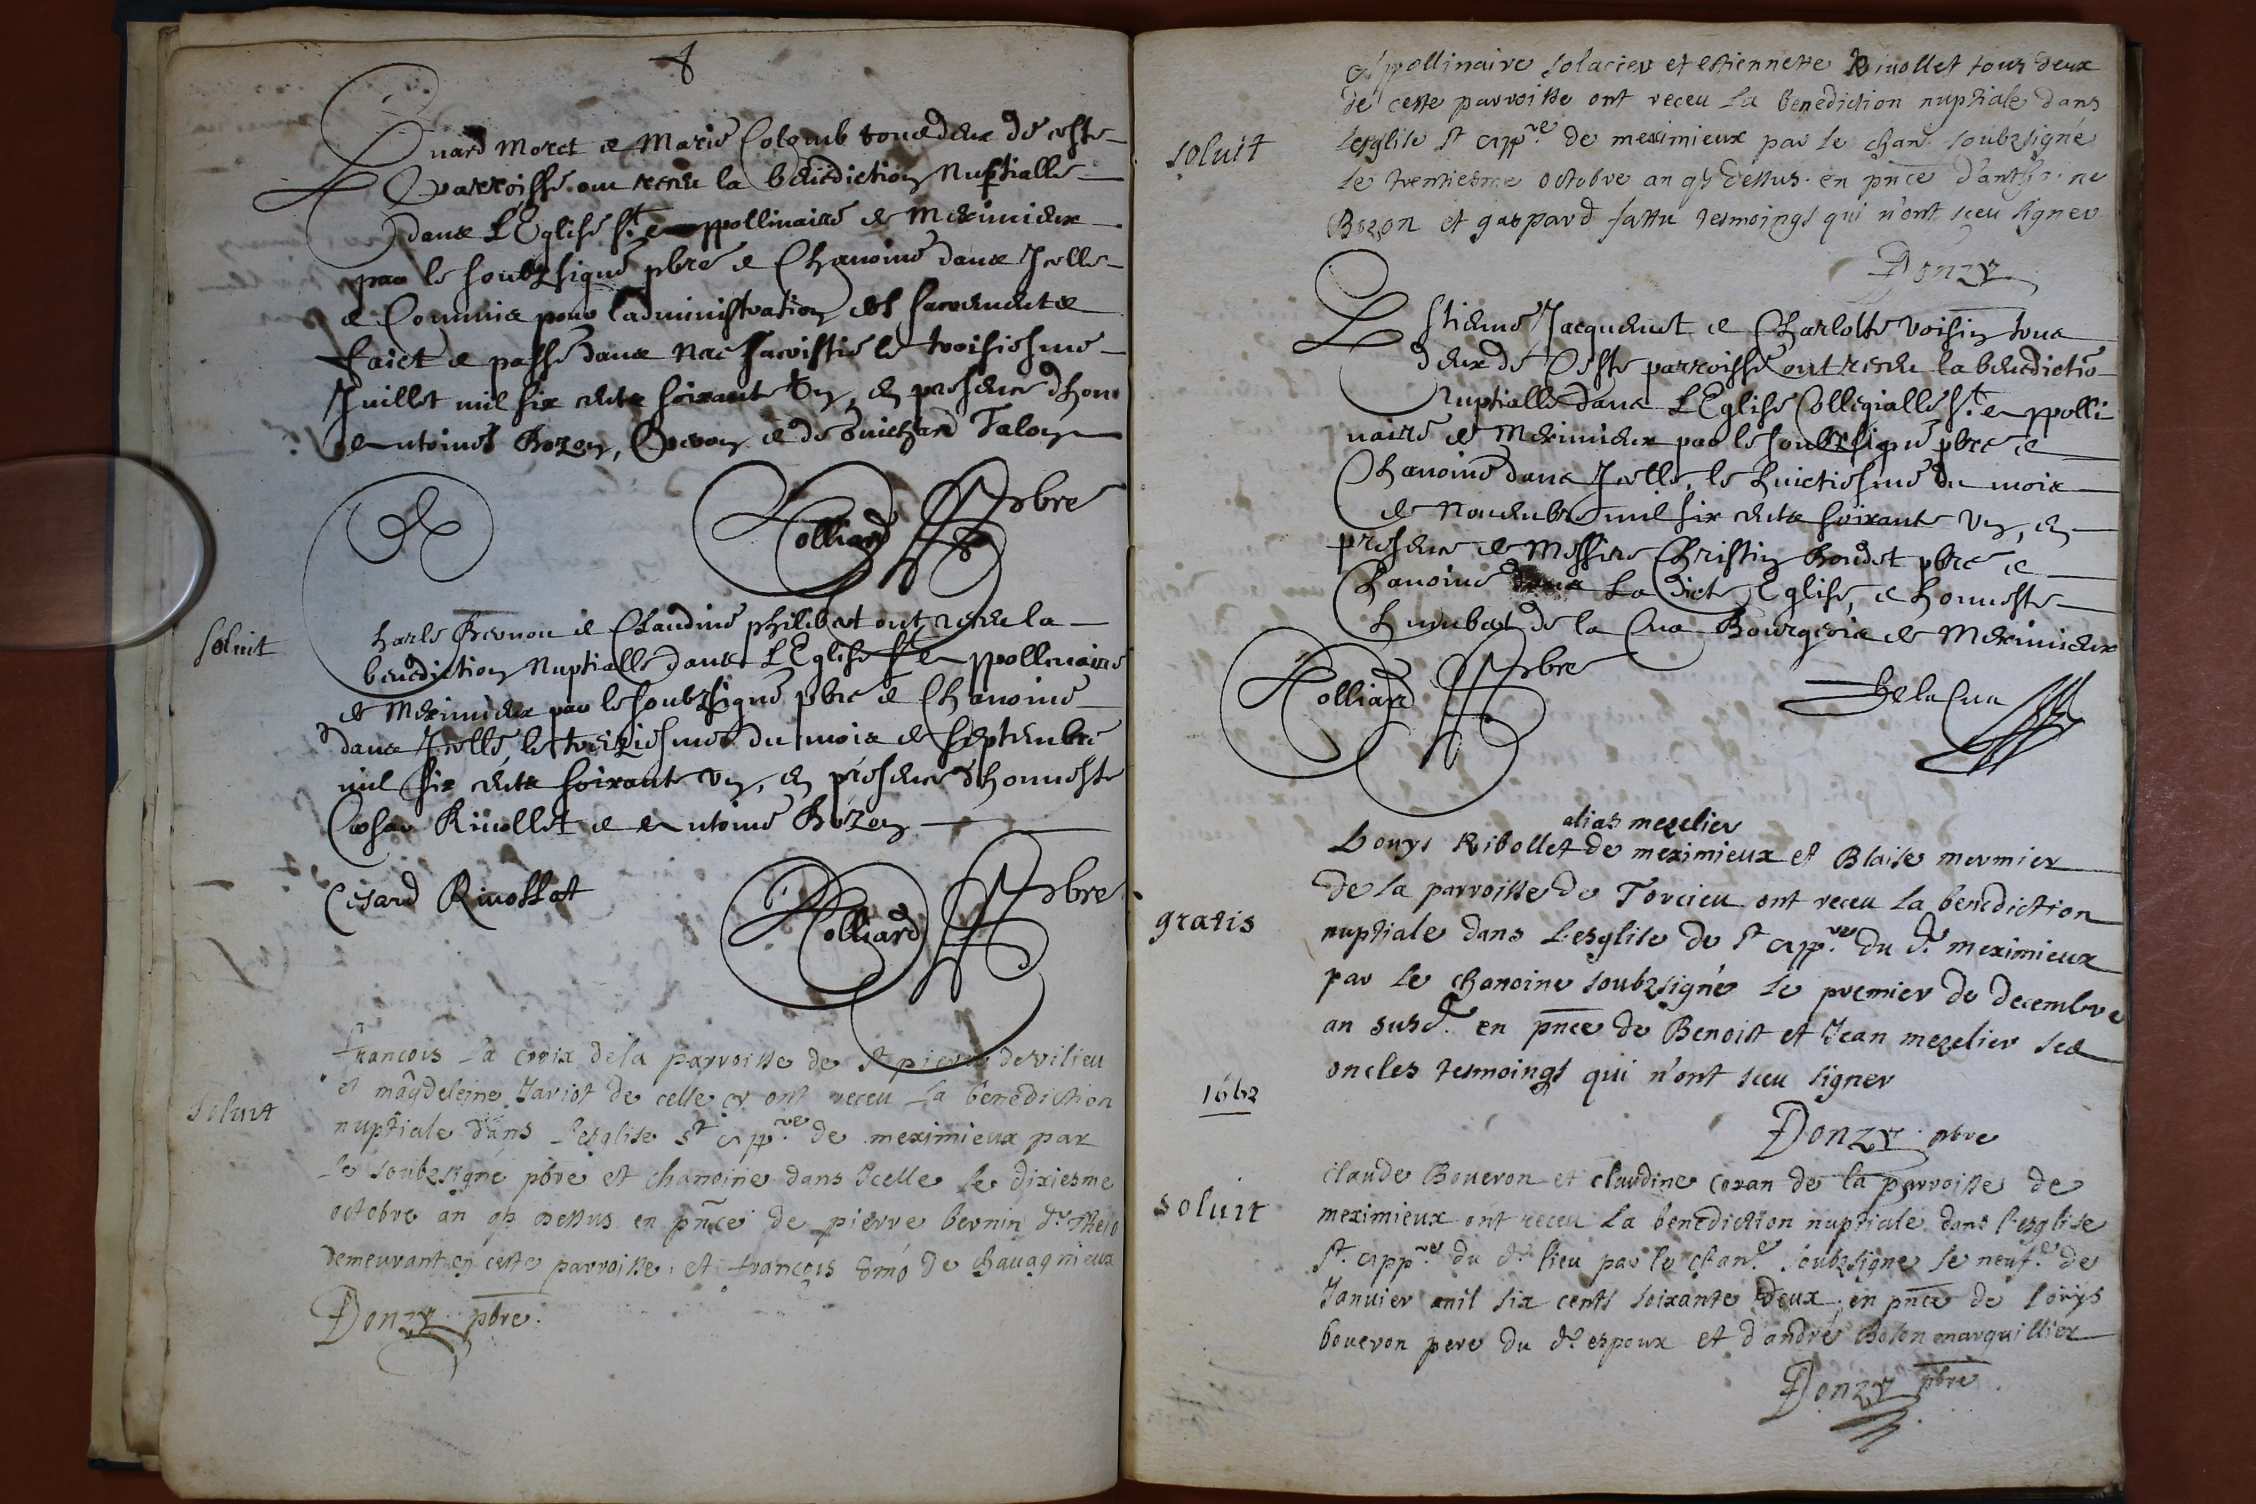 Evuard Moret et Marie Colomb tous deux de ceste
parroisse ont receu la benediction Nuptialle
dans L'Eglise St. Appollinaire de Meximieux
par le soubzsigné pbre et Chanoine dans Icelle
et Commis pour l'administration des sacrements
faict et passé dans nre sacristie le troisiesme
Juillet mil six cents soixante Un, en presence d'hon
Antoine Bozon, et de Guichard Talon
Colliard pbre
Soluit
Charle Bernou et Claudine philibert ont receu la
benediction Nuptialle dans L'Eglise St Appollinaire
de Meximieux par le soubzsigné pbre et Chanoine
dans Icelle, le treiziesme du mois de septembre
mil six cents soixante un, en presence d'honneste
Cesar Riuollet et Antoine Bozon
Cesard Riuollat
Colliard pbre
soluit
francois La croix de la parroisse de st pierre de vilieu
et magdeleine Jariot de celle cy ont receu La benediction
nuptiale dans L'esglise St App.re de meximieux par
Le soubzsigné pbre et chanoine dans Icelle le dixiesme
octobre an q dessus en pnce de pierre bernin
demeurant en ceste parroisse et francois de chauagnieux
Donzy pbre
soluit
Appollinaire solacier et estiennette Riuollet tous deux
de ceste parroisse ont receu La benediction nuptiale dans
Lesglise st App.re de meximieux par le chan. soubzsigné
le trentiesme octobre an q dessus en pnce d'anth.ne
Bozon et gaspard fattu tesmoings qui n'ont sceu signer
Donzy
Estienne Jacquemet et Charlotte voisin tous
deux de Ceste parroisse ont receu la benedictio
Nuptialle dans L'Eglise Collegialle St. Appolli
naire de Meximieux par le soubzsigné pbre et
Chanoine dans Icelle, le huictiesme du mois
de Nouembre mil six cents soixante Un, en
presence de Messire Christin Boudet pbre et
Chanoine dans La dicte Eglise, et honneste
humbert de la Cua Bourgeois de Meximieux
Colliard pbre
De la Cua
alias mezelier
gratis
Louys Ribollet de meximieux et Blaise mermier
de la parroisse de Torcieu ont receu la benediction
nuptiale dans L'esglise de st App.re du d. meximieux
par le chanoine soubzsigné le premier de decembre
an susd. en pnce de Benoist et Jean mezelier ses
oncles tesmoings qui n'ont sceu signer
Donzy pbre
1662
soluit
claude Boueron et claudine coran de la parroisse de
meximieux ont receu La benediction nuptiale dans l'esglise
st App.re du d. lieu par le chan.e soubzsigné le neuf.e de
Januier mil six cents soixante deux en pnce de Louys
boueron pere du d. espoux et d'andré Bolon marquillier
Donzy pbre